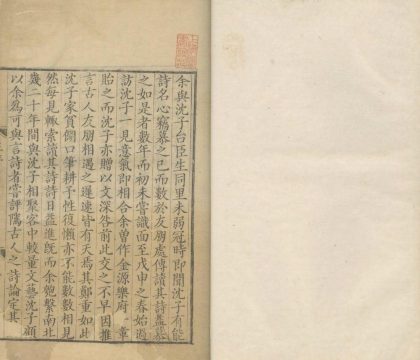 余與沈子台臣生同里未弱冠時即聞沈子有能
詩名心竊慕之已而數於友朋處傳讀其詩益慕
之如是者數年而初未嘗識面至戊申之春始過
訪沈子一見意氣即相合余曽作金源樂府一章
貽之而沈子亦贈以文深咎前此交之不早因推
言古人友朋相遇之遲速皆有天焉其鄭重如此
沈子家貧餬口筆耕子性復懶亦不能數數相見
然每見輒索讀其詩詩日益進既而余匏繫南北
幾二十年間與沈子相聚客中較量文藝沈子顧
以余為可與言詩者嘗評隲古人之詩論定其